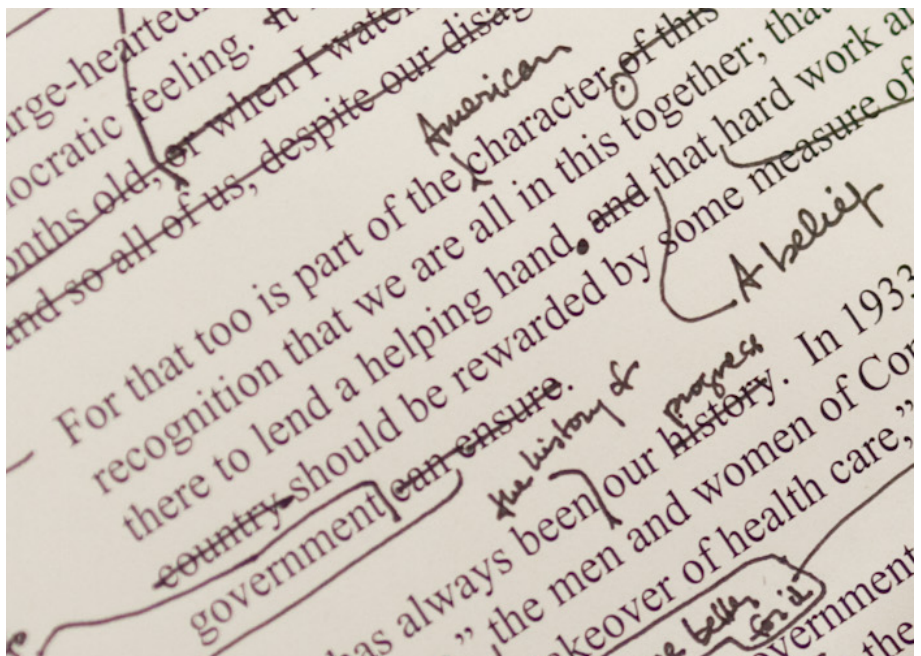 arge-hearted
ocratic feeling. It
onths old, or when I watc
and so all of us, despite our disag
American
For that too is part of the character of this
recognition that we are all in this together; that
there to lend a helping hand. and that hard work a
A belief
country should be rewarded by some measure of
government can ensure.
the history of progress
has always been our history. In 1933
," the men and women of Con
keover of health care,"
better
for it
overnment
the